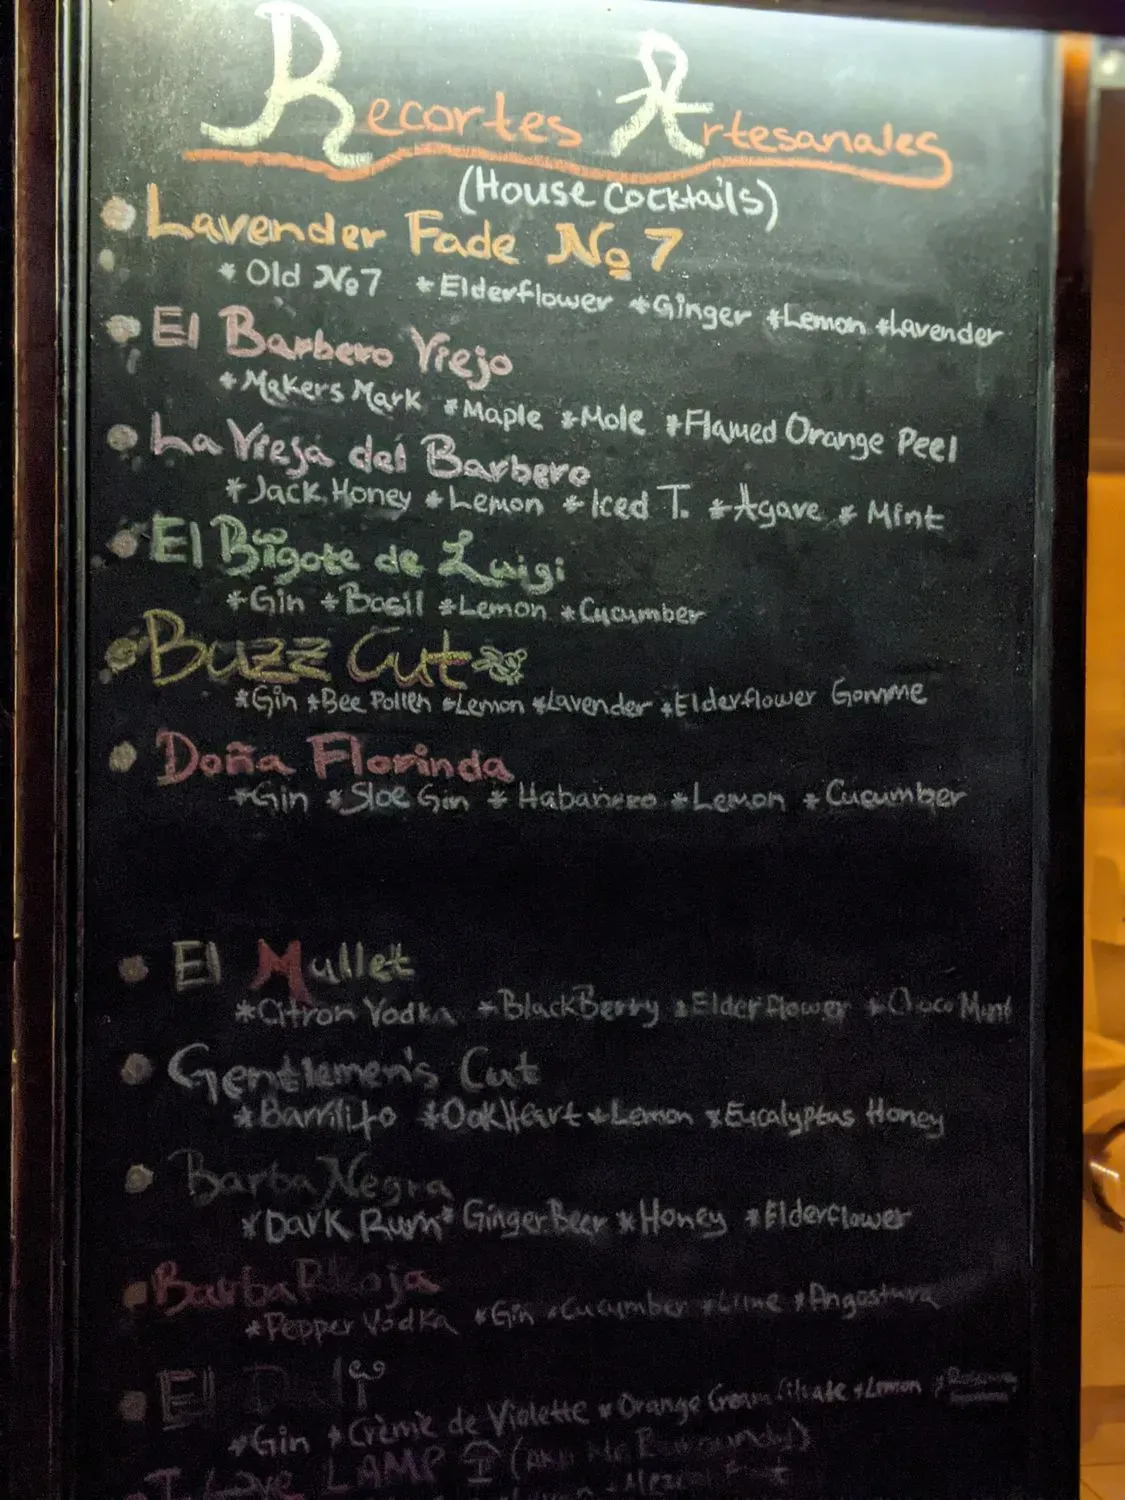 Recortes Artesanales
(House Cocktails)
Lavender Fade No 7
* Old No 7 * Elderflower * Ginger * Lemon * Lavender
El Barbero Viejo
* Makers Mark * Maple * Mole * Flamed Orange Peel
La Vieja del Barbero
* Jack Honey * Lemon * Iced T. * Agave * Mint
El Bigote de Luigi
* Gin * Basil * Lemon * Cucumber
Buzz Cut
* Gin * Bee Pollen * Lemon * Lavender * Elderflower Gomme
Doña Florinda
* Gin * Sloe Gin * Habanero * Lemon * Cucumber
El Mullet
* Citron Vodka * BlackBerry * Elderflower * Choco Mint
Gentlemen's Cut
* Barrilito * OakHeart * Lemon * Eucalyptus Honey
Barba Negra
* Dark Rum * Ginger Beer * Honey * Elderflower
Barba Roja
* Pepper Vodka * Gin * Cucumber * Lime * Angostura
El Dali
* Gin * Crème de Violette * Orange * Lemon
I Love LAMP (AKA